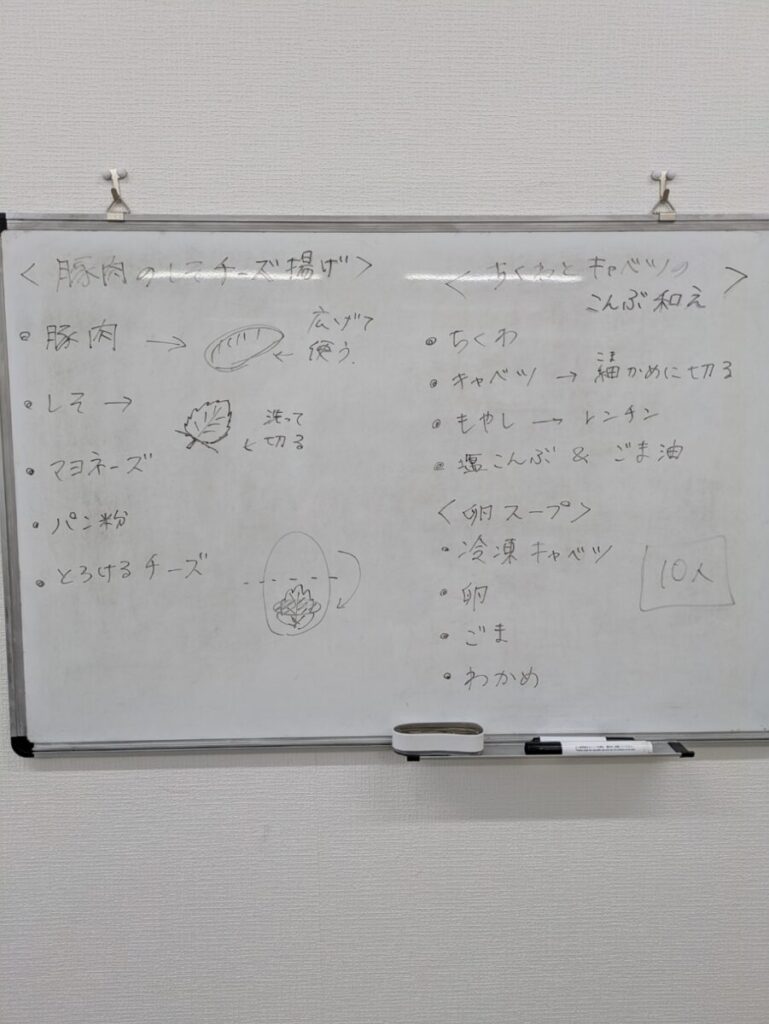 <豚肉のしそチーズ揚げ>
• 豚肉 →
広げて
← 使う.
• しそ →
洗って
← 切る
• マヨネーズ
• パン粉
• とろけるチーズ
<ちくわとキャベツの
こんぶ和え>
• ちくわ
• キャベツ → 細かめに切る
こま
• もやし → レンチン
• 塩こんぶ & ごま油
<卵スープ>
• 冷凍キャベツ
• 卵
• ごま
• わかめ
10人